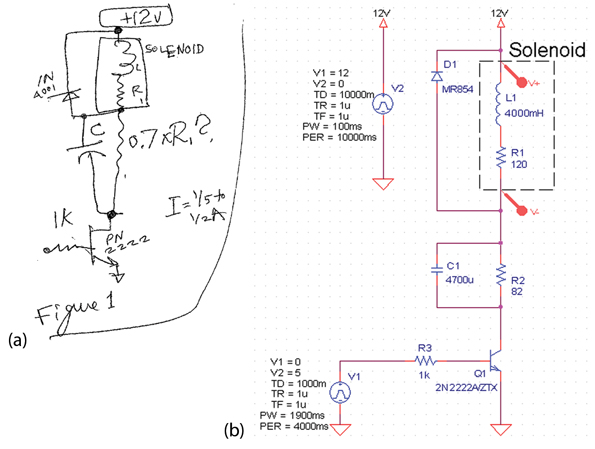 +12V
SOLENOID
L
1N
4001
R1
C
0.7xR1?
1K
I = 1/5 to
1/2 A
PN
2222
Figure 1
(a)
12V
12V
Solenoid
V1 = 12
V2 = 0
TD = 10000m
TR = 1u
TF = 1u
PW = 100ms
PER = 10000ms
V2
D1
MR854
V+
L1
4000mH
R1
120
V-
C1
4700u
R2
82
V1 = 0
V2 = 5
TD = 1000m
TR = 1u
TF = 1u
PW = 1900ms
PER = 4000ms
V1
R3
1k
Q1
2N2222A/ZTX
(b)